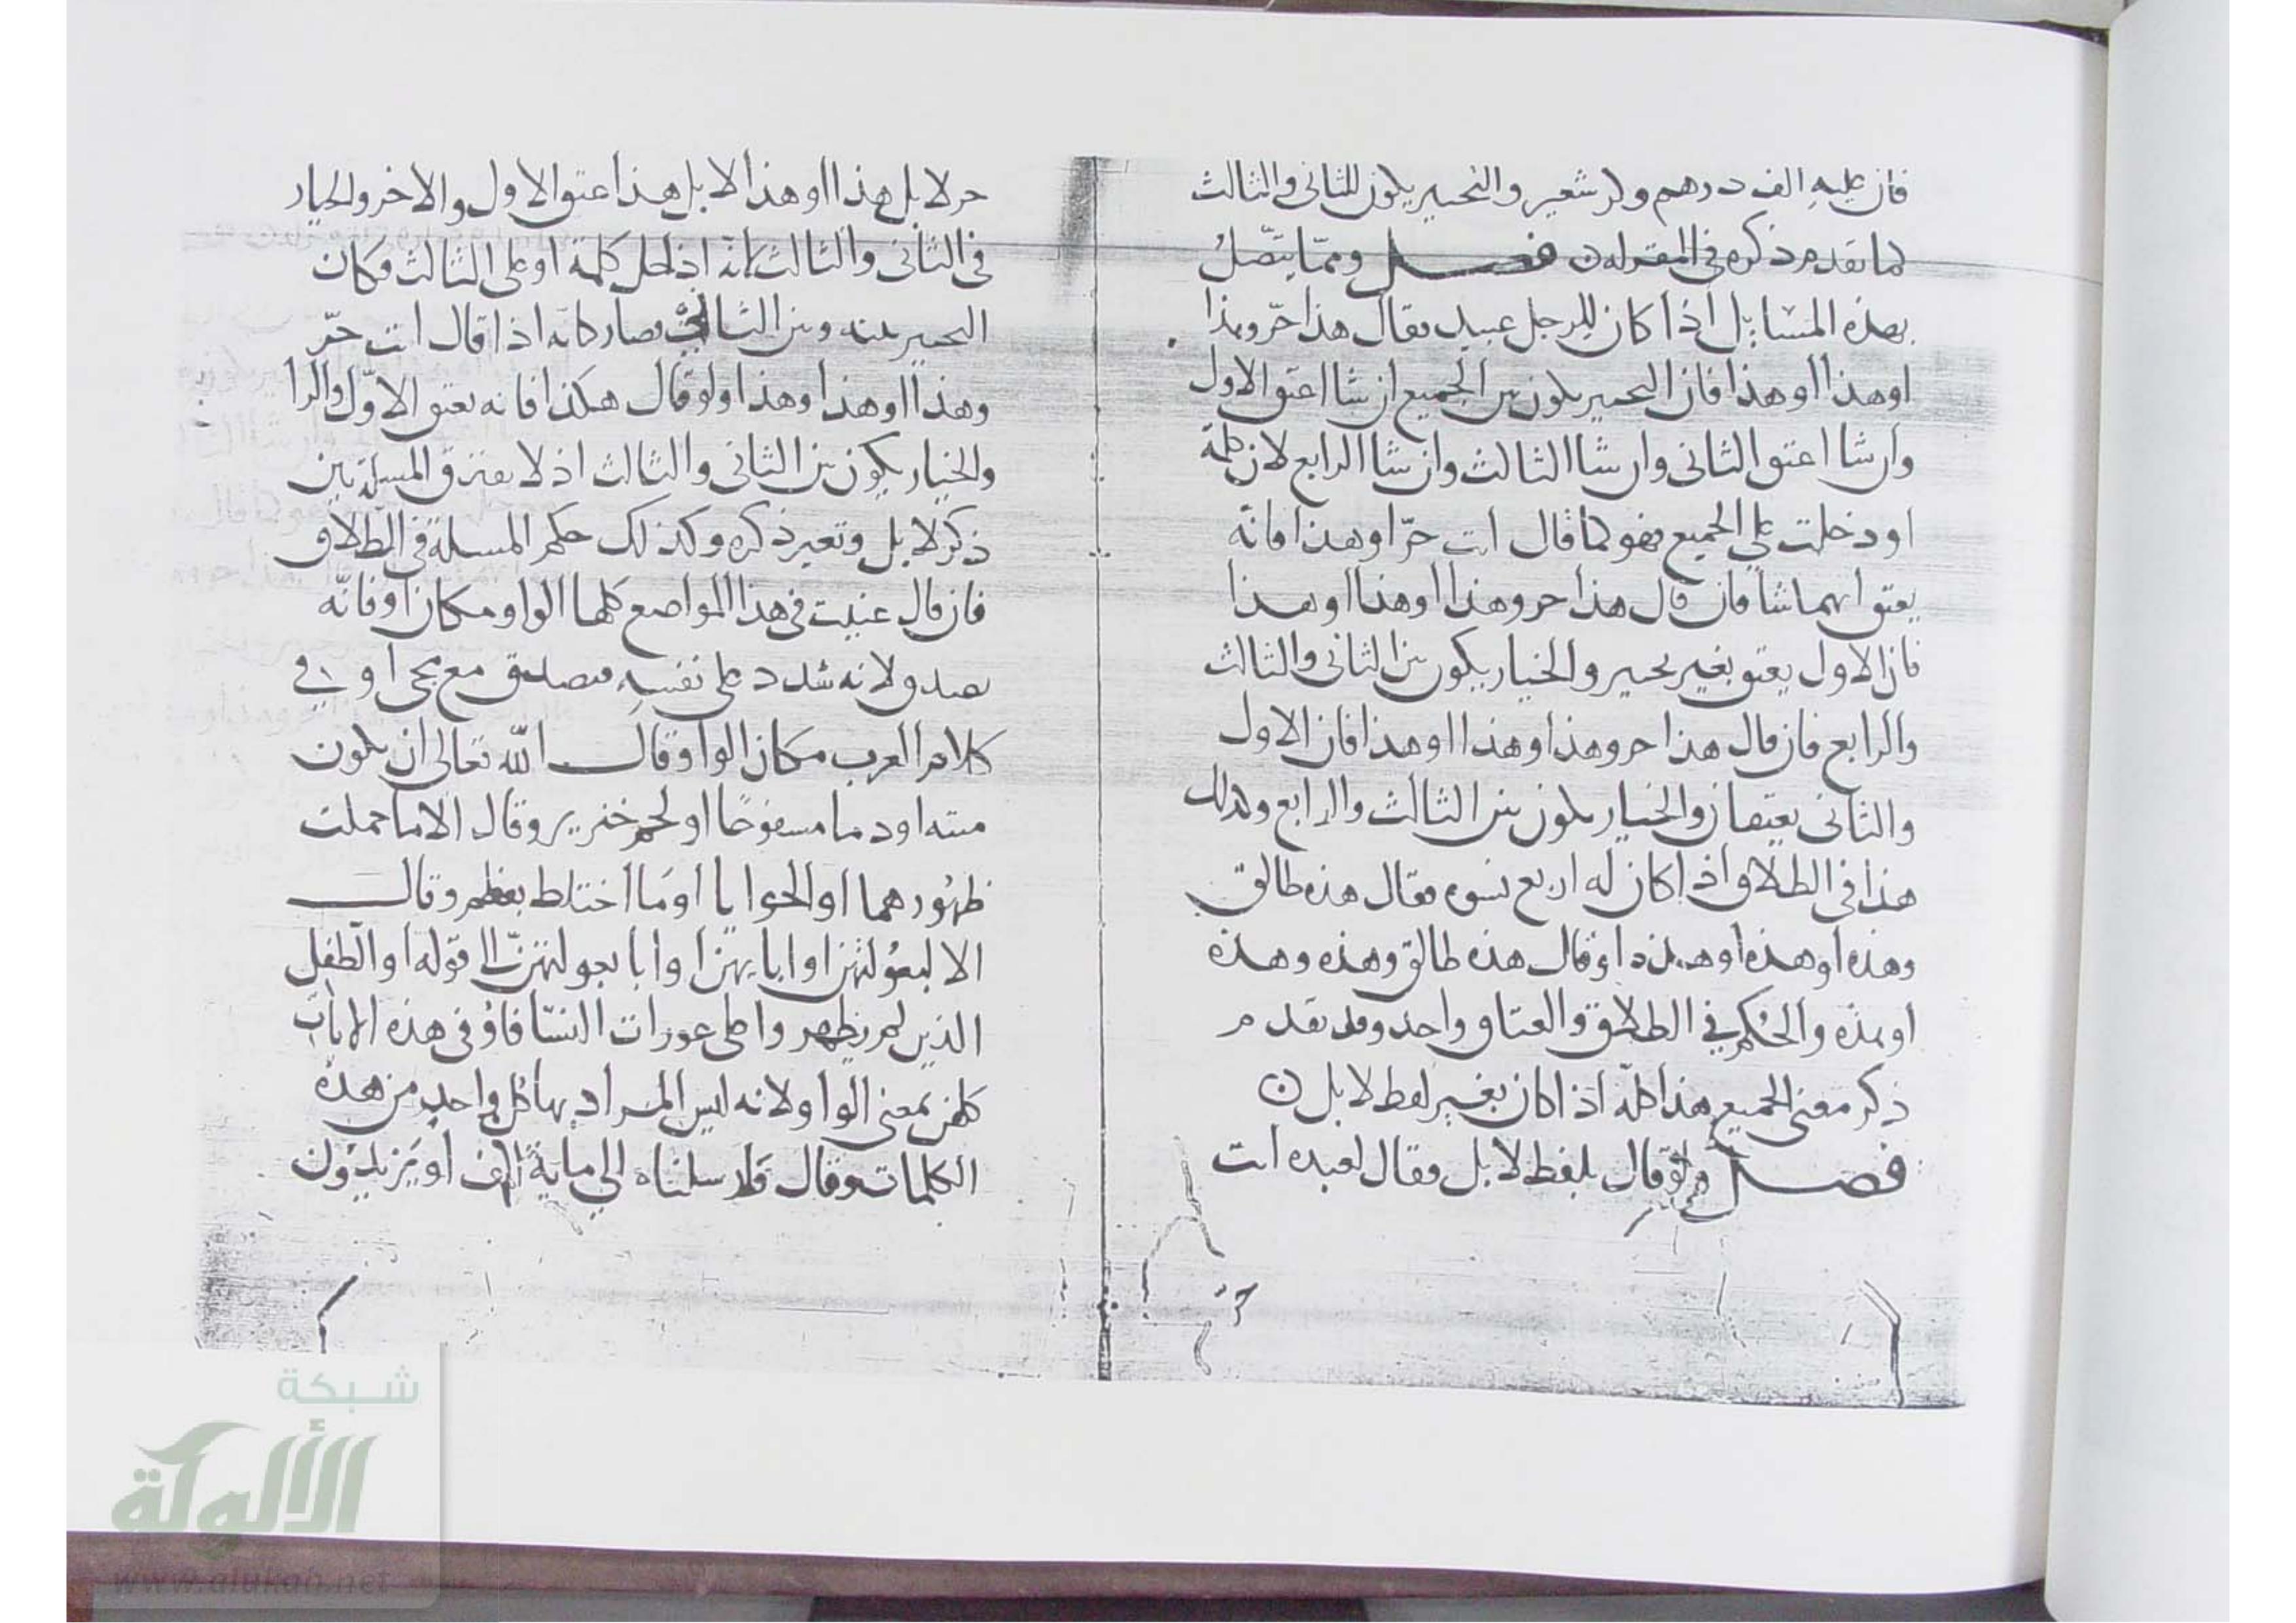 فان عليه الف درهم وكر شعير والتخيير يكون للثاني والثالث
كما تقدم ذكره في المقر له ن فصل ومما يتصل
بهذه المسايل اذا كان للرجل عبيد فقال هذا حر وهذا
او هذا او هذا فان التخيير يكون بين الجميع ان شا اعتق الاول
وان شا اعتق الثاني وان شا الثالث وان شا الرابع لان كلمة
او دخلت على الجميع فهو كما قال انت حر او هذا فانه
يعتق ايهما شا فان قال هذا حر وهذا او هذا او هذا
فان الاول يعتق بغير تخيير والخيار يكون بين الثاني والثالث
والرابع فان قال هذا حر وهذا وهذا او هذا فان الاول
والثاني يعتقان والخيار يكون بين الثالث والرابع وكذلك
هذا في الطلاق اذا كان له اربع نسوه فقال هذه طالق
وهذه او هذه او هذه او قال هذه طالق وهذه وهذه
او هذه والحكم في الطلاق والعتاق واحد وقد تقدم
ذكر معنى الجميع هذا كله اذا كان بغير لفظ لا بل ن
فصل ولو قال بلفظ لا بل فقال لعبده انت
حر لا بل هذا او هذا لا بل هذا عتق الاول والاخر والخيار
في الثاني والثالث لانه ادخل كلمة او على الثالث فكان
التخيير بينه وبين الثاني فصار كانه اذا قال انت حر
وهذا او هذا وهذا ولو قال هكذا فانه يعتق الاول والرا
والخيار يكون بين الثاني والثالث اذ لا يفترق المسلتين
ذكر لا بل وتغير ذكره وكذلك حكم المسلة في الطلاق
فان قال عنيت في هذا المواضع كلها الواو مكان او فانه
يصدق لانه شدد على نفسه فيصدق مع مجي او في
كلام العرب مكان الواو قال الله تعالى ان يكون
ميته او دما مسفوحا او لحم خنزير وقال الا ما حملت
ظهورهما او الحوايا او ما اختلط بعظم وقال
الا لبعولتهن او ابايهن او ابا بعولتهن الى قوله او الطفل
الذين لم يظهروا على عورات النسا فاو في هذه الايات
كلهن بمعنى الواو لانه ليس المراد بها كل واحد من هذه
الكلمات وقال وارسلناه الى ماية الف او يزيدون
شبكة
الألوكة
www.alukah.net